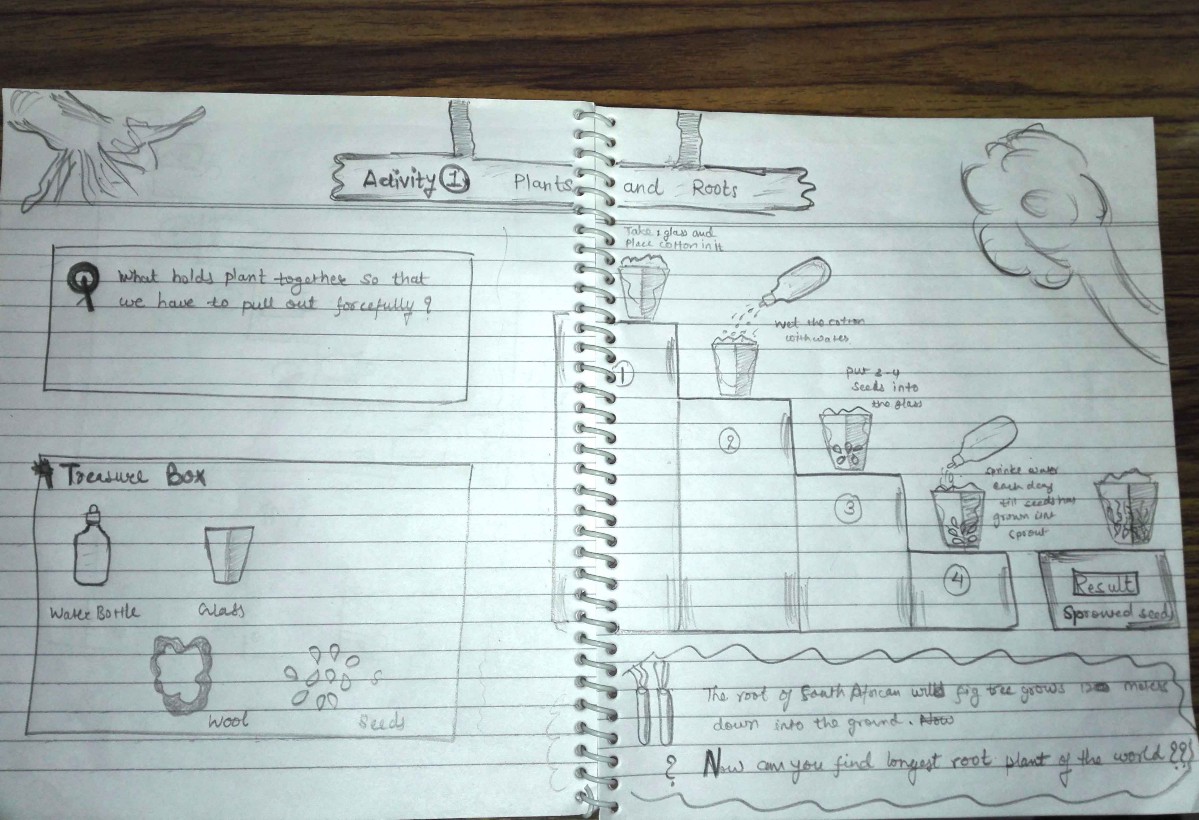 Activity 1 Plants and Roots
What holds plant together so that
we have to pull out forcefully ?
Treasure Box
Water Bottle
Glass
Wool
Seeds
Take 1 glass and
Place cotton in it
1
Wet the cotton
with water
2
put 3-4
seeds into
the glass
3
sprinke water
each day
till seeds has
grown
sprout
4
Result
Sprowed seeds
The root of South African wild fig tree grows 120 meters
down into the ground. Now
? Now can you find longest root plant of the world ??